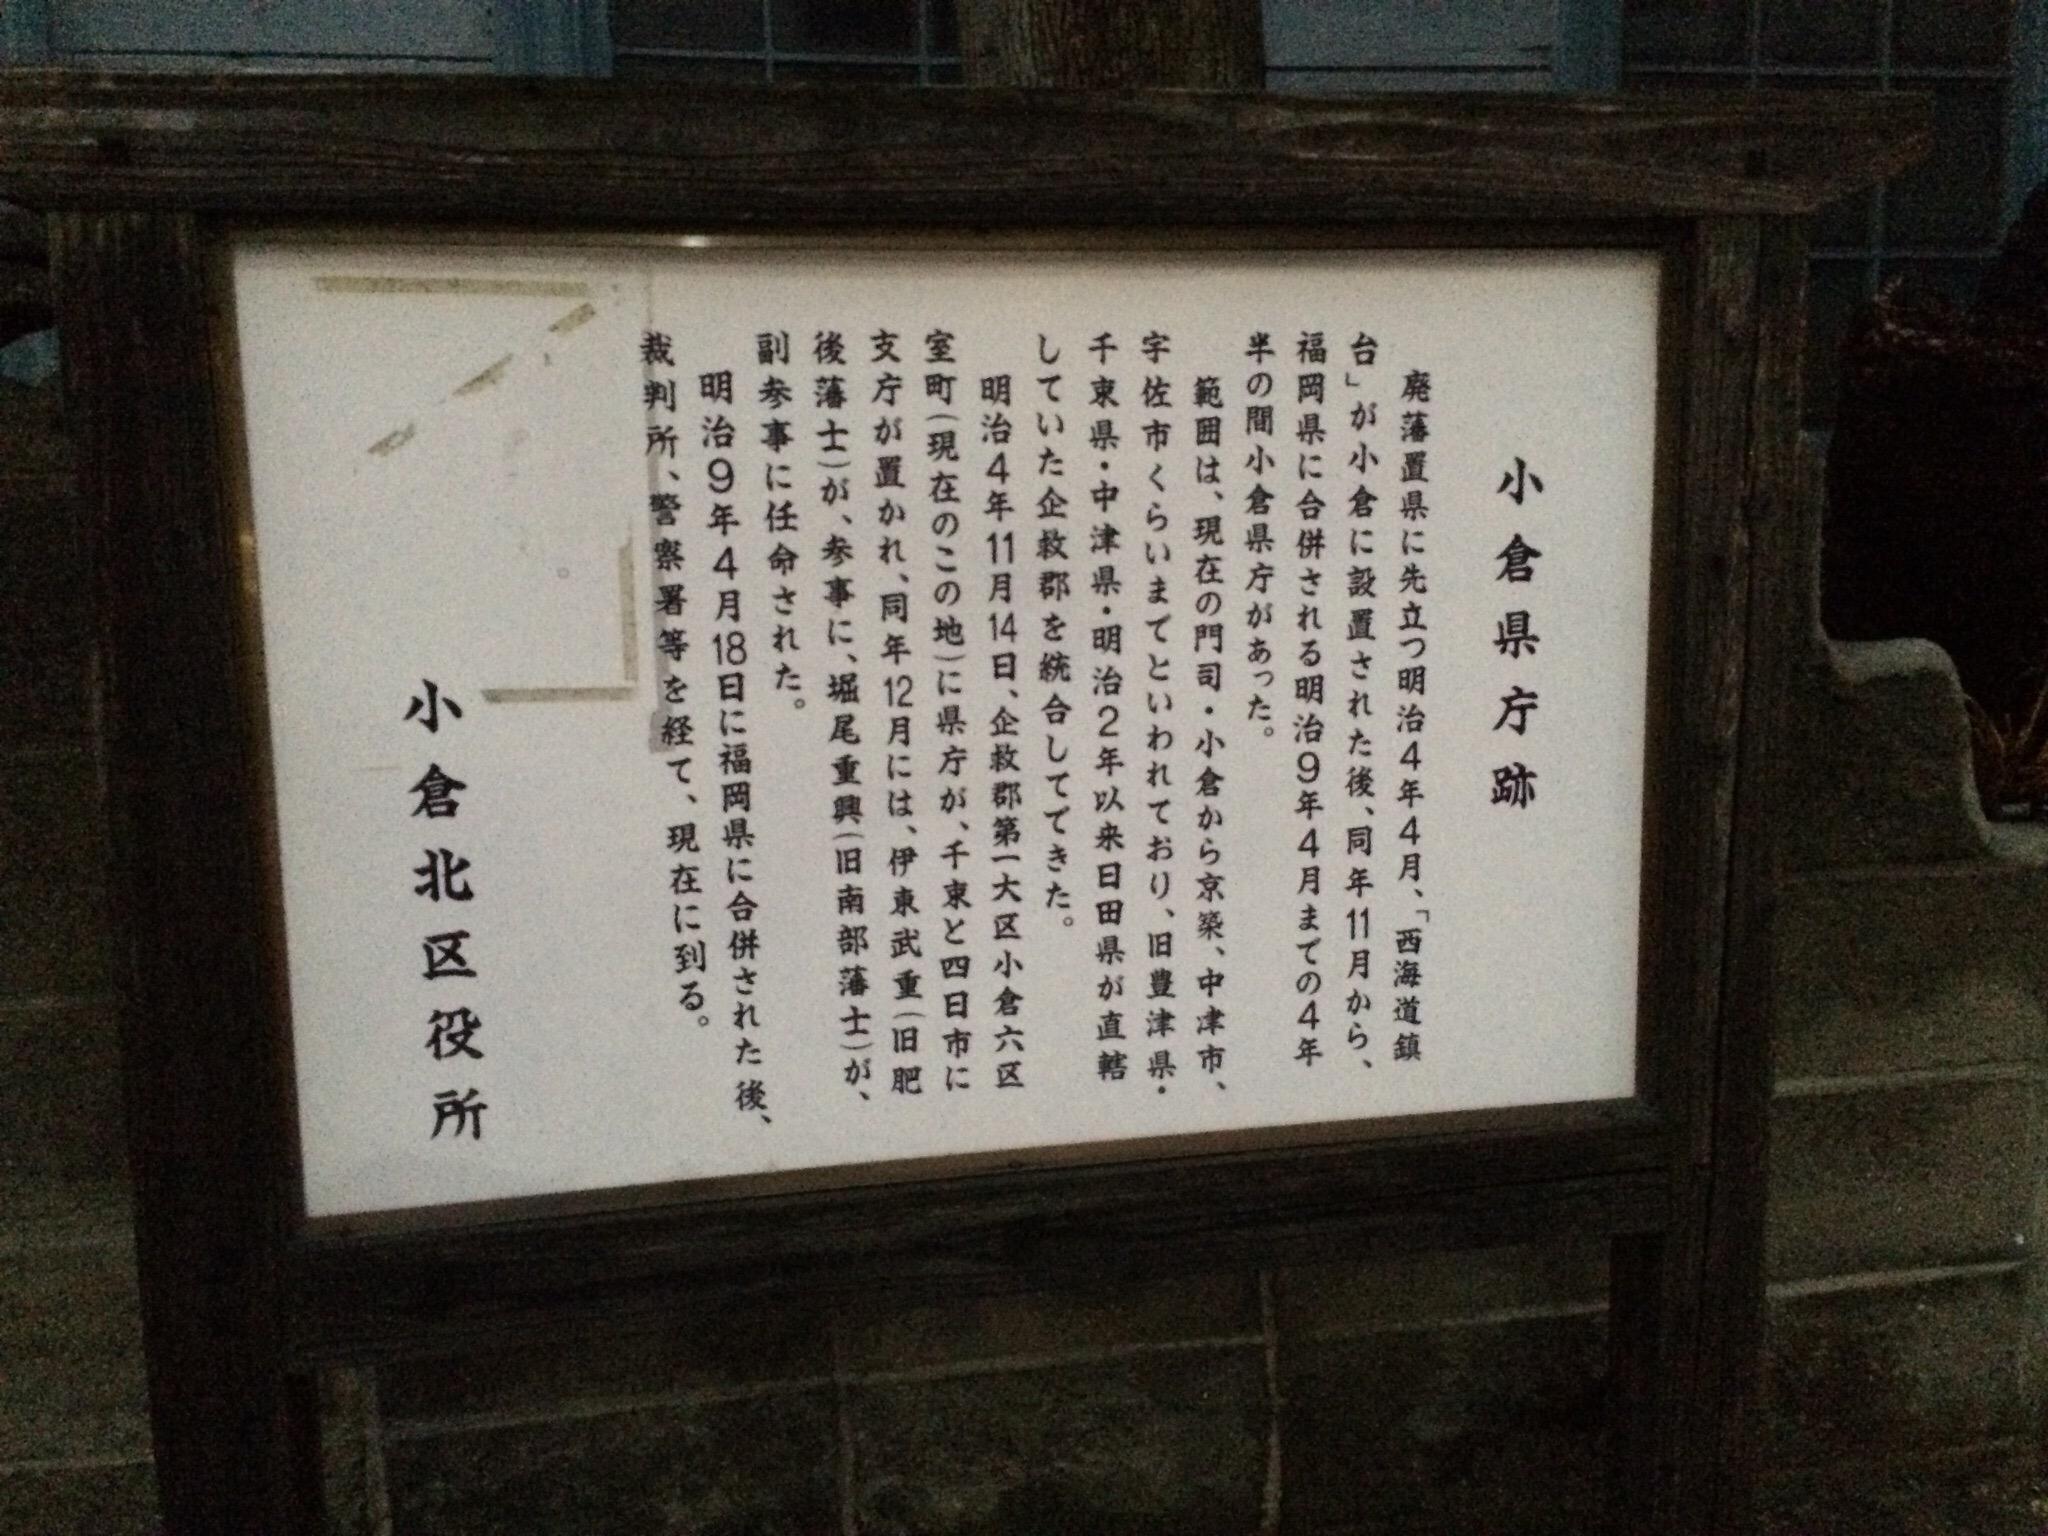 小倉県庁跡
廃藩置県に先立つ明治4年4月、「西海道鎮
台」が小倉に設置された後、同年11月から、
福岡県に合併される明治9年4月までの4年
半の間小倉県庁があった。
範囲は、現在の門司・小倉から京築、中津市、
宇佐市くらいまでといわれており、旧豊津県・
千束県・中津県・明治2年以来日田県が直轄
していた企救郡を統合してできた。
明治4年11月14日、企救郡第一大区小倉六区
室町(現在のこの地)に県庁が、千束と四日市に
支庁が置かれ、同年12月には、伊東武重(旧肥
後藩士)が、参事に、堀尾重興(旧南部藩士)が、
副参事に任命された。
明治9年4月18日に福岡県に合併された後、
裁判所、警察署等を経て、現在に到る。
小倉北区役所